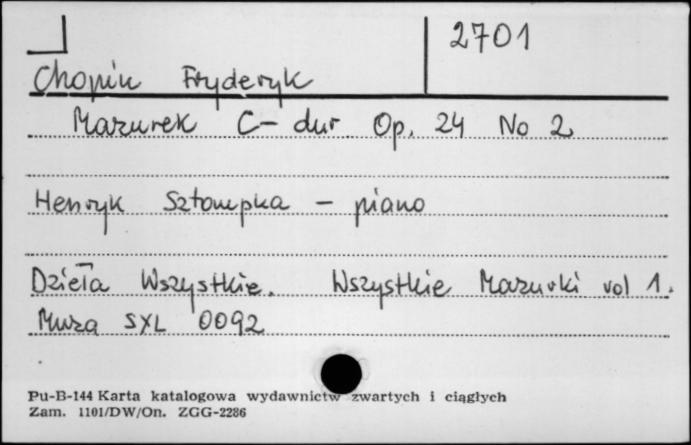 2701
Chopin Fryderyk
Mazurek C-dur Op. 24 No 2
Henryk Sztompka - piano
Dzieła Wszystkie. Wszystkie Mazurki vol 1.
Muza SXL 0092
Pu-B-144 Karta katalogowa wydawnictw zwartych i ciągłych
Zam. 1101/DW/On. ZGG-2286